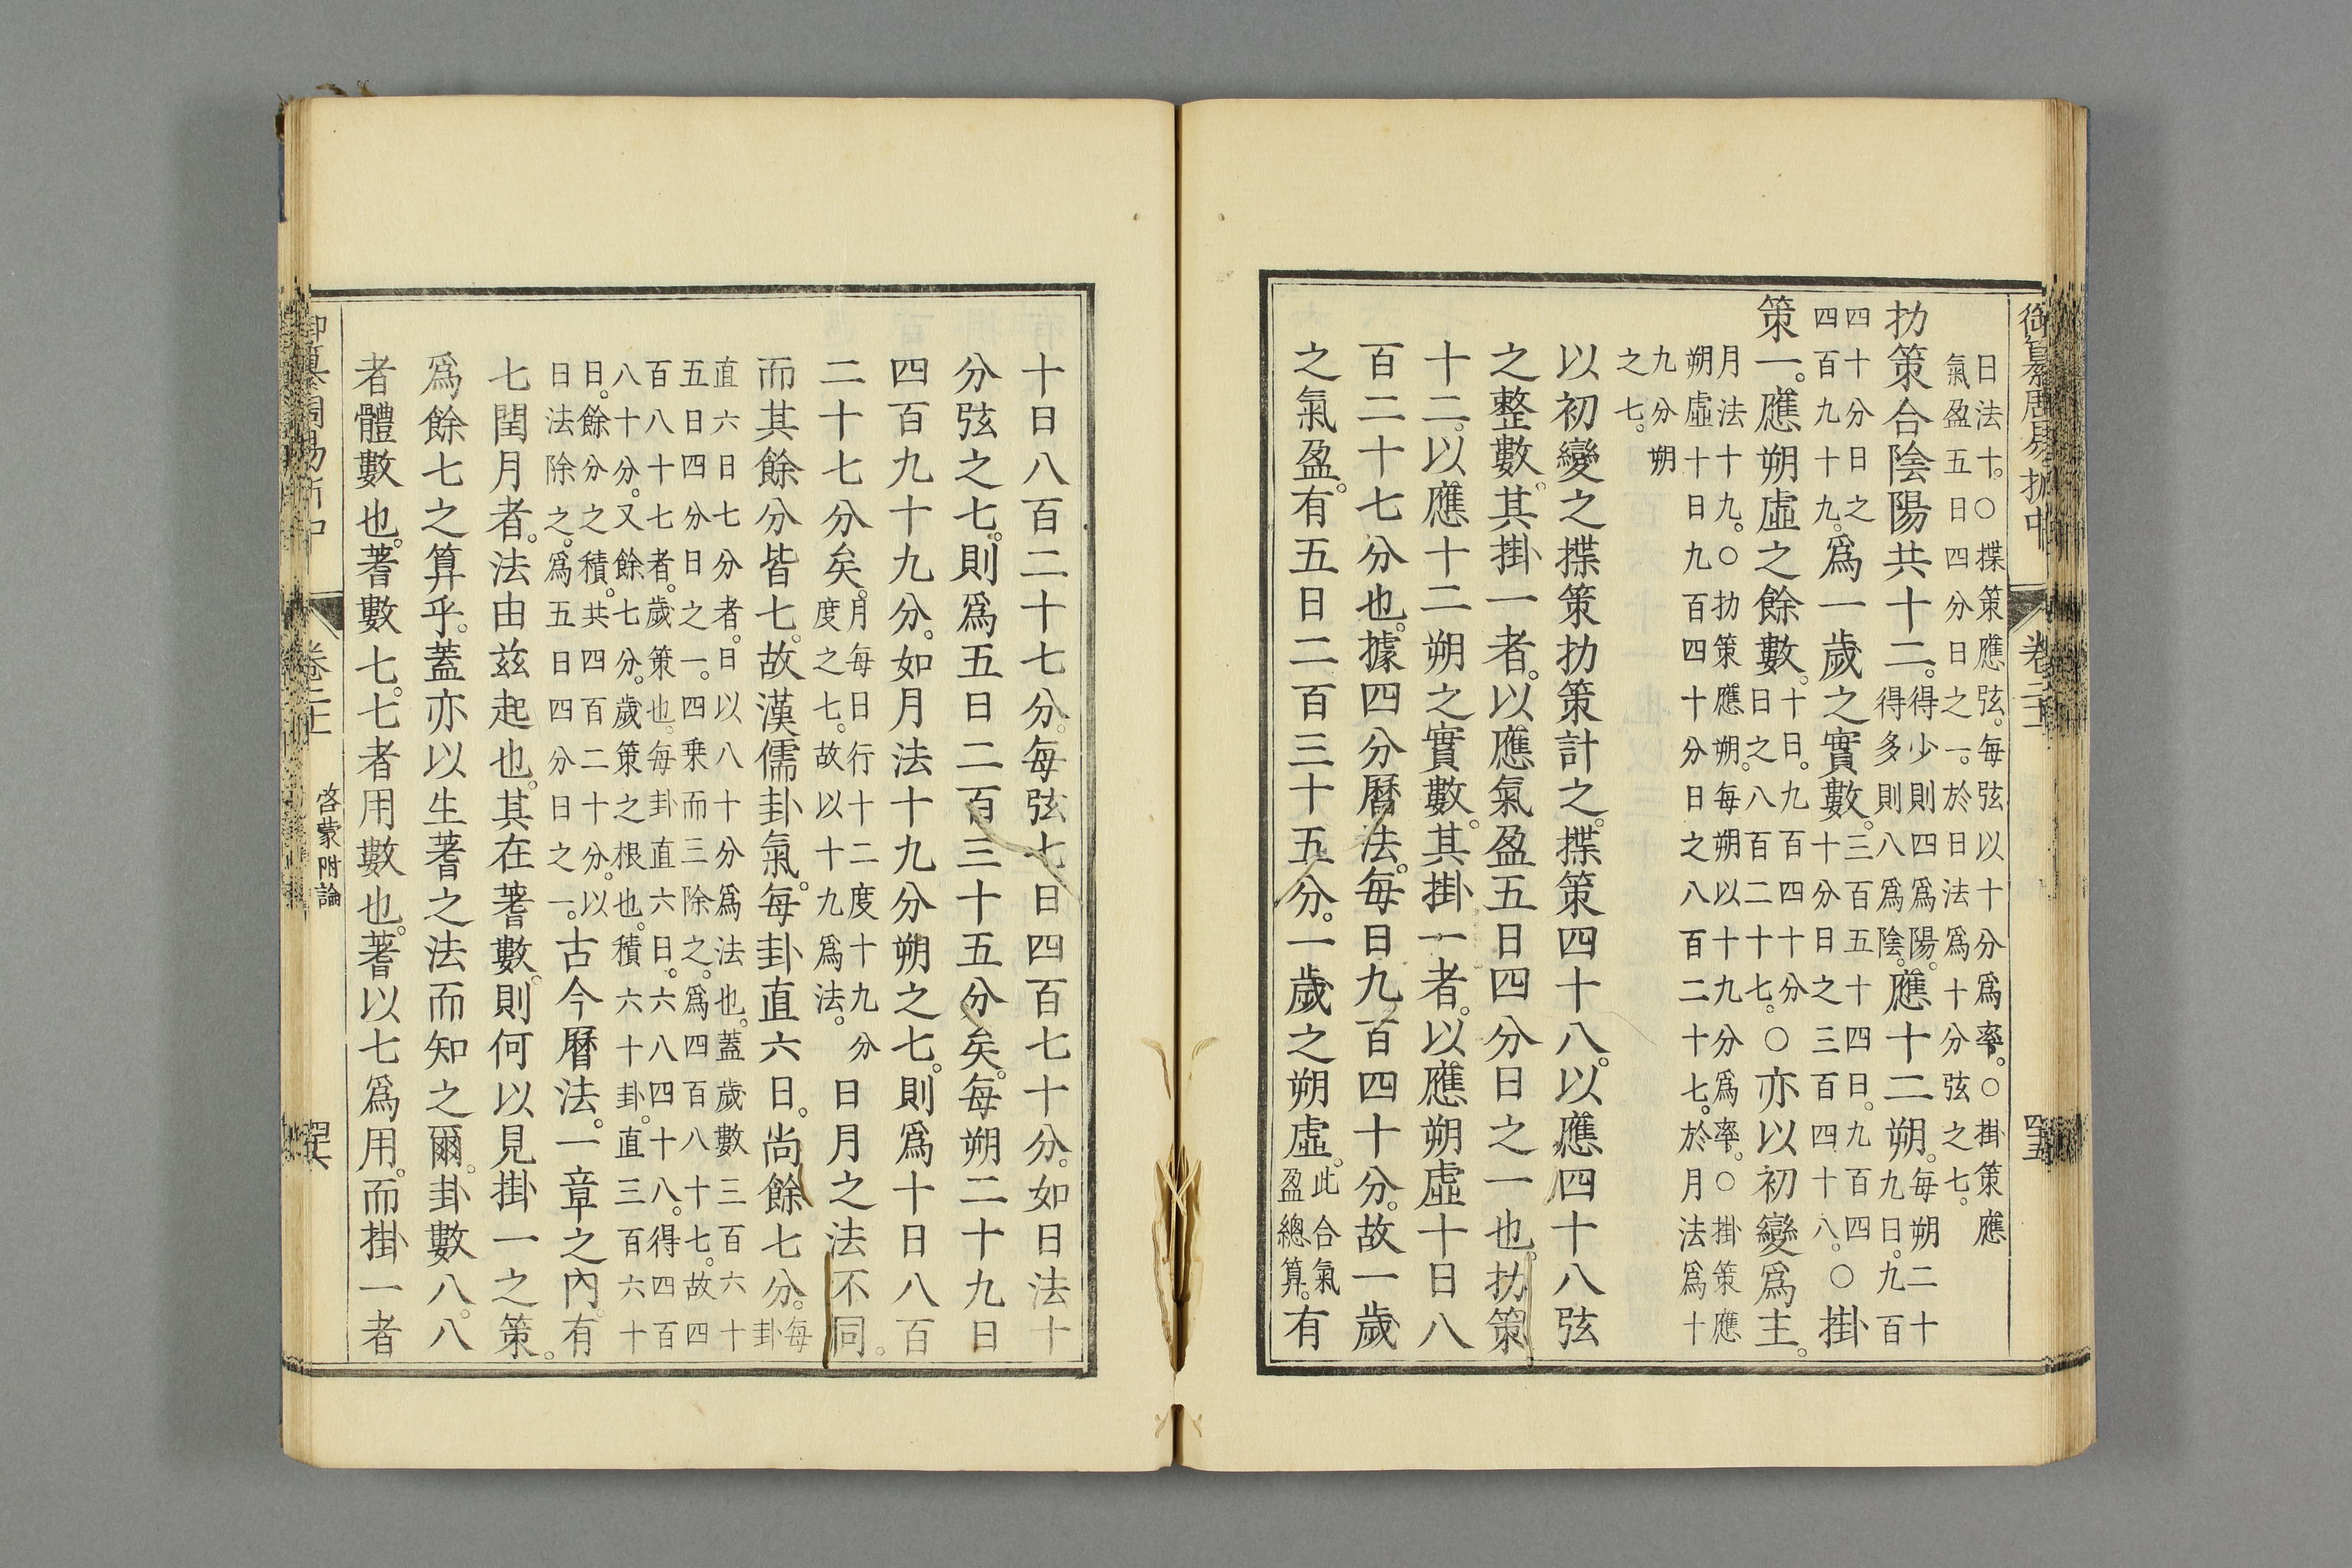 御纂周易折中
日法十。○揲策應弦。每弦以十分爲率。○掛策應
氣盈五日四分日之一。於日法爲十分弦之七。
扐策合陰陽共十二。得少則四爲陽。得多則八爲陰。應十二朔。每朔二十九日。九百
四十分日之四百九十九。爲一歲之實數。三百五十四日。九百四十分日之三百四十八。○掛
策一。應朔虛之餘數。十日。九百四十分日之八百二十七。○亦以初變爲主。
月法十九。○扐策應朔。每朔以十九分爲率。○掛策應
朔虛十日九百四十分日之八百二十七。於月法爲十
九分朔
之七。
以初變之揲策扐策計之。揲策四十八。以應四十八弦
之整數。其掛一者。以應氣盈五日四分日之一也。扐策
十二。以應十二朔之實數。其掛一者。以應朔虛十日八
百二十七分也。據四分曆法。每日九百四十分。故一歲
之氣盈。有五日二百三十五分。一歲之朔虛。此合氣盈總算。有
十日八百二十七分。每弦七日四百七十分。如日法十
分弦之七。則爲五日二百三十五分矣。每朔二十九日
四百九十九分。如月法十九分朔之七。則爲十日八百
二十七分矣。月每日行十二度十九分度之七。故以十九爲法。日月之法不同。
而其餘分皆七。故漢儒卦氣。每卦直六日。尚餘七分。每卦
直六日七分者。日以八十分爲法也。蓋歲數三百六十
五日四分日之一。四乘而三除之。爲四百八十七。故四
百八十七者。歲策也。每卦直六日。六八四十八。得四百
八十分。又餘七分。歲策之根也。積六十卦。直三百六十
日。餘分之積。共四百二十分。以日法除之。爲五日四分日之一。古今曆法。一章之內。有
七閏月者。法由玆起也。其在蓍數。則何以見掛一之策。
爲餘七之算乎。蓋亦以生蓍之法而知之爾。卦數八。八
者體數也。蓍數七。七者用數也。蓍以七爲用。而掛一者
啓蒙附論